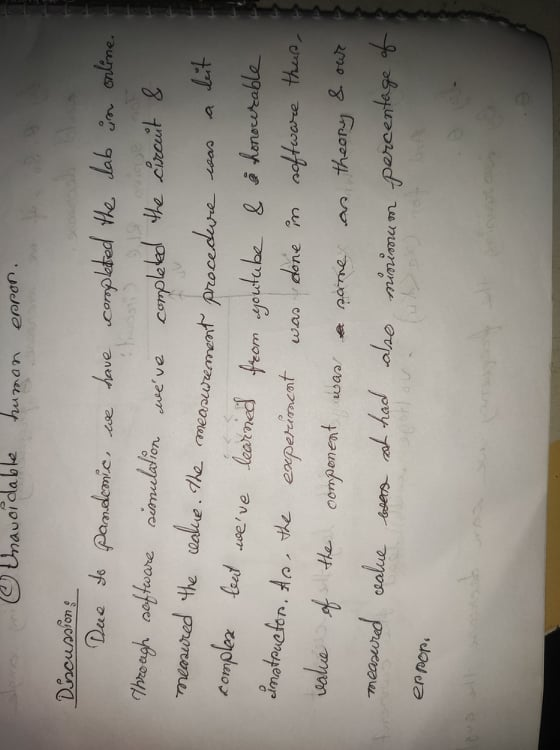 © Unavoidable human error.
Discussion:
Due to pandemic, we have completed the lab in online.
Through software simulation we've completed the circuit &
measured the value. The measurement procedure was a bit
complex but we've learned from youtube & honourable
instructor. As, the experiment was done in software thus,
value of the component was same as theory & our
measured value had also minimum percentage of
error.